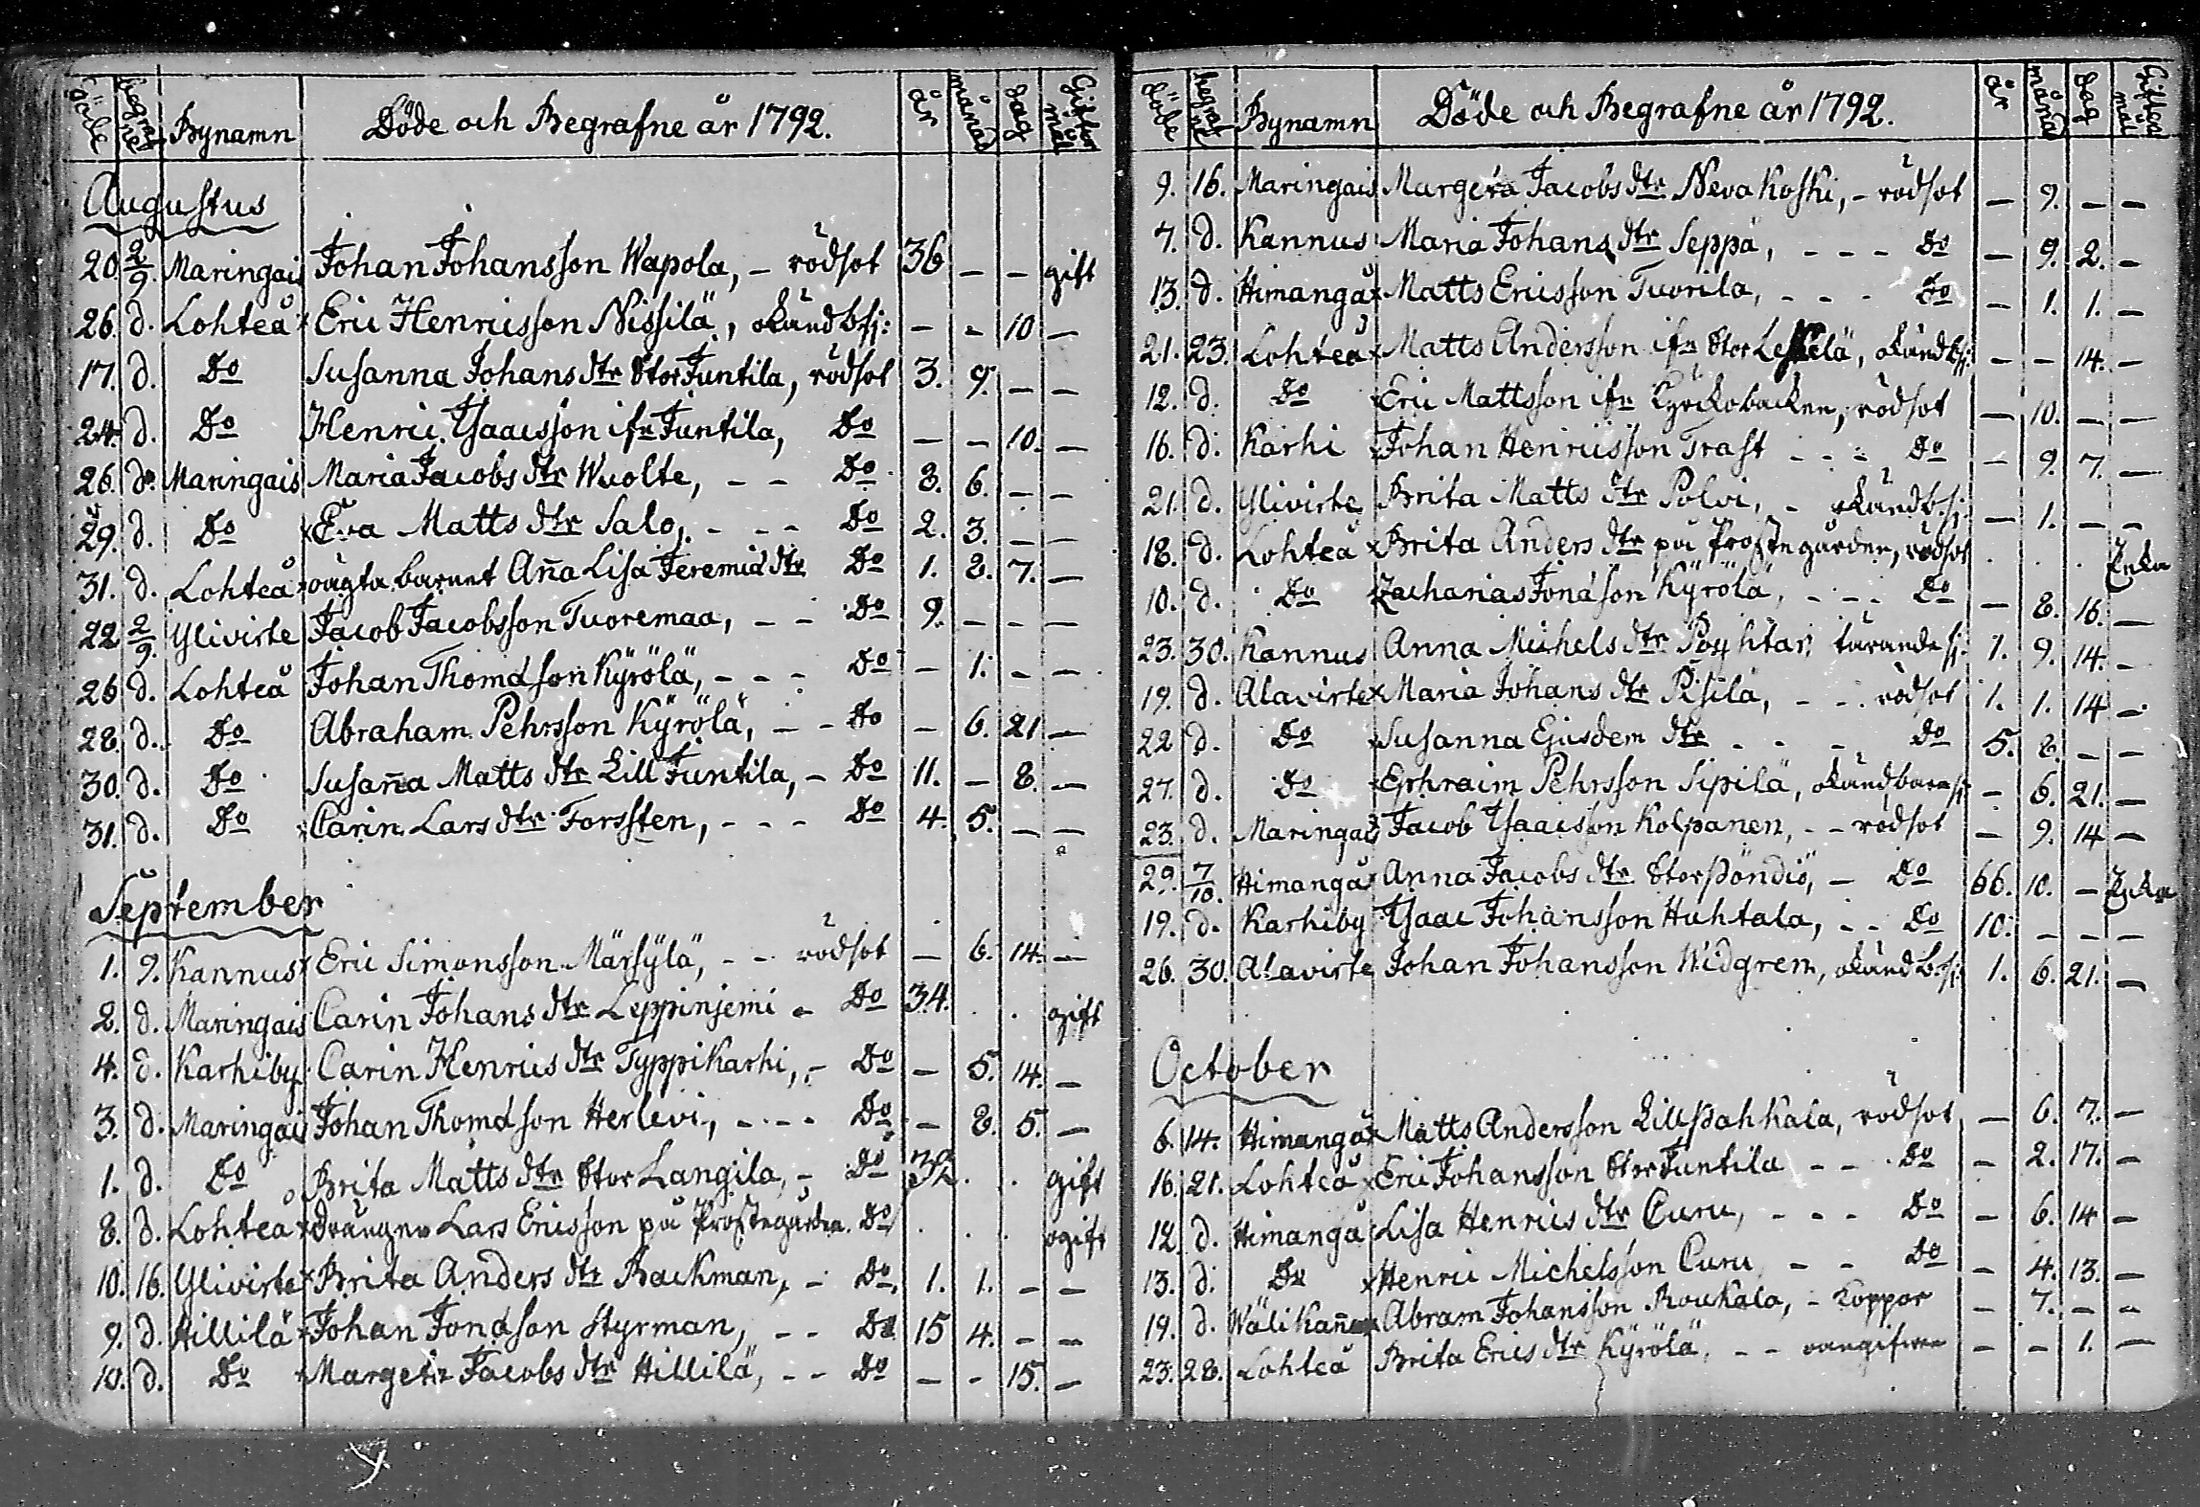 döde begrafne Bynamn Döde och Begrafne år 1792. år månad dag Giftermål
Augustus
20 2/9. Maringais Johan Johansson Wapola, - rödsot 36 - - gift
26. d. Lohteå Eric Henricsson Nissilä, okänd b. sj: - - 10 -
17. d. Do Susanna Johans dtr StorJuntila, rödsot 3. 9. - -
24. d. Do Henric Isaacsson ifr Juntila, Do - - 10. -
26. do Maringais Maria Jacobs dtr Wuolte, - - Do 8. 6. - -
29. d. Do Eva Matts dtr Salo, - - - Do 2. 3. - -
31. d. Lohteå oägta barnet Aña Lisa Jeremiä dtr Do 1. 8. 7. -
22 2/9. Ylivirte Jacob Jacobsson Tuoremaa, - - Do 9. - - -
26 d. Lohteå Johan Thomasson Kyrölä, - - - Do - 1. - -
28. d. Do Abraham Pehrsson Kyrölä, - - Do - 6. 21 -
30. d. Do Susaña Matts dtr Lill Juntila, - Do 11. - 8. -
31. d. Do Carin Lars dtr Forssten, - - - Do 4. 5. - -
September
1. 9. Kannus Eric Simonsson Märsylä, - - rödsot - 6. 14. -
2. d. Maringais Carin Johans dtr Leppinjemi - Do 34. . . gift
4. d. Karhiby Carin Henrics dtr Typpikarhi, - Do - 5. 14. -
3. d. Maringais Johan Thomasson Herlevi, - - - Do - 8. 5. -
1. d. Do Brita Matts dtr Stor Langila, - Do . . gift
8. d. Lohteå drängen Lars Ericsson på Prostegården. Do . . . ogift
10. 16. Ylivirte Brita Anders dtr Backman, - Do. 1. 1. - -
9. d. Hillilä Johan Jonasson Styrman, - - Do 15 4. - -
10. d. Do Margeta Jacobs dtr Hillilä, - - Do - - 15. -
döde begrafne Bynamn Döde och Begrafne år 1792. år månad dag Giftermål
9. 16. Maringais Margeta Jacobs dtr Nevakoski, - rödsot - 9. - -
7. d. Kannus Maria Johans dtr Seppä, - - - Do - 9. 2. -
13. d. Himangå Matts Ericsson Tuorila, - - - Do - 1. 1. -
21. 23. Lohteå Matts Andersson ifr Stor okänd b. sj: - - 14. -
12. d. Do Eric Mattsson ifr Kyrckobacken, rödsot - 10. - -
16. d. Karhi Johan Henricsson Trast - - - Do - 9. 7. -
21. d. Ylivirte Brita Matts dtr Polvi, - okänd b. sj: - 1. - -
18. d. Lohteå Brita Anders dtr på Prostegården, rödsot . . . Enka
10. d. Do Zacharias Jonasson Kyrölä, - - - Do - 8. 16. -
23. 30. Kannus Anna Michels dtr Pöyhtäri tärande sj. 1. 9. 14. -
19. d. Alavirte Maria Johans dtr Pisilä, - - - rödsot 1. 1. 14 -
22 d. Do Susanna Ejusdem dtr - - - Do 5. 8. - -
27. d. Do Ephraim Pehrsson Sipilä, okänd barnsj. - 6. 21. -
23. d. Maringais Jacob Isaacsson Kolpanen, - - rödsot - 9. 14 -
29. 7/10. Himangå Anna Jacobs dtr StorPöndiö, - Do 66. 10. - Enka
19. d. Karhiby Isaac Johansson Huhtala, - - Do 10. - - -
26. 30. Alavirte Johan Johansson Widgren, okänd b. sj: 1. 6. 21. -
October
6. 14. Himangå Matts Andersson LillPahkala, rödsot - 6. 7. -
16. 21. Lohteå Eric Johansson StorJuntila - - Do - 2. 17. -
12 d. Himangå Lisa Henrics dtr Curu, - - - Do - 6. 14 -
13. d. Do Henric Michelsson Curu, - - Do - 4. 13. -
19. d. Abram Johansson Roukala, - Koppor - 7. - -
23. 28. Lohteå Brita Erics dtr Kyrölä, - - oangifven - - 1. -